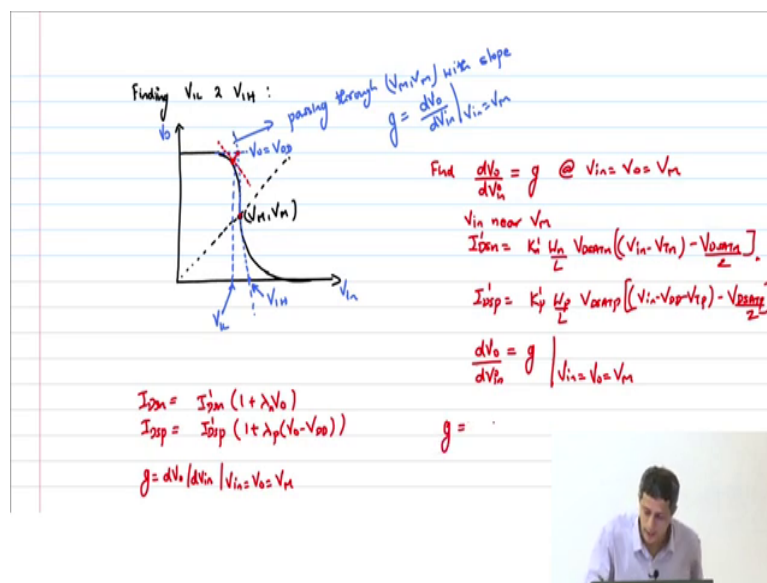 Finding VIL & VIH :
passing through (VM,VM) with slope
g = dVo/dVin | Vin=VM
Vo
Vo=VDD
(VM,VM)
VIL
VIH
Vin
Find dVo/dVin = g @ Vin=Vo=VM
Vin near VM
I'DSn = Kn' Wn/L VDSATn[(Vin-VTn) - VDSATn/2].
I'DSp = Kp' Wp/L VDSATp[(Vin-VDD-VTp) - VDSATp/2]
dVo/dVin = g | Vin=Vo=VM
IDSn = I'DSn (1+λnVo)
IDSp = I'DSp (1+λp(Vo-VDD))
g = dVo/dVin | Vin=Vo=VM
g =